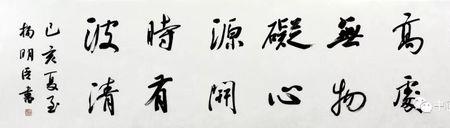 高處
無物
礙心
源開
時有
波清
己亥夏至
楊明臣書